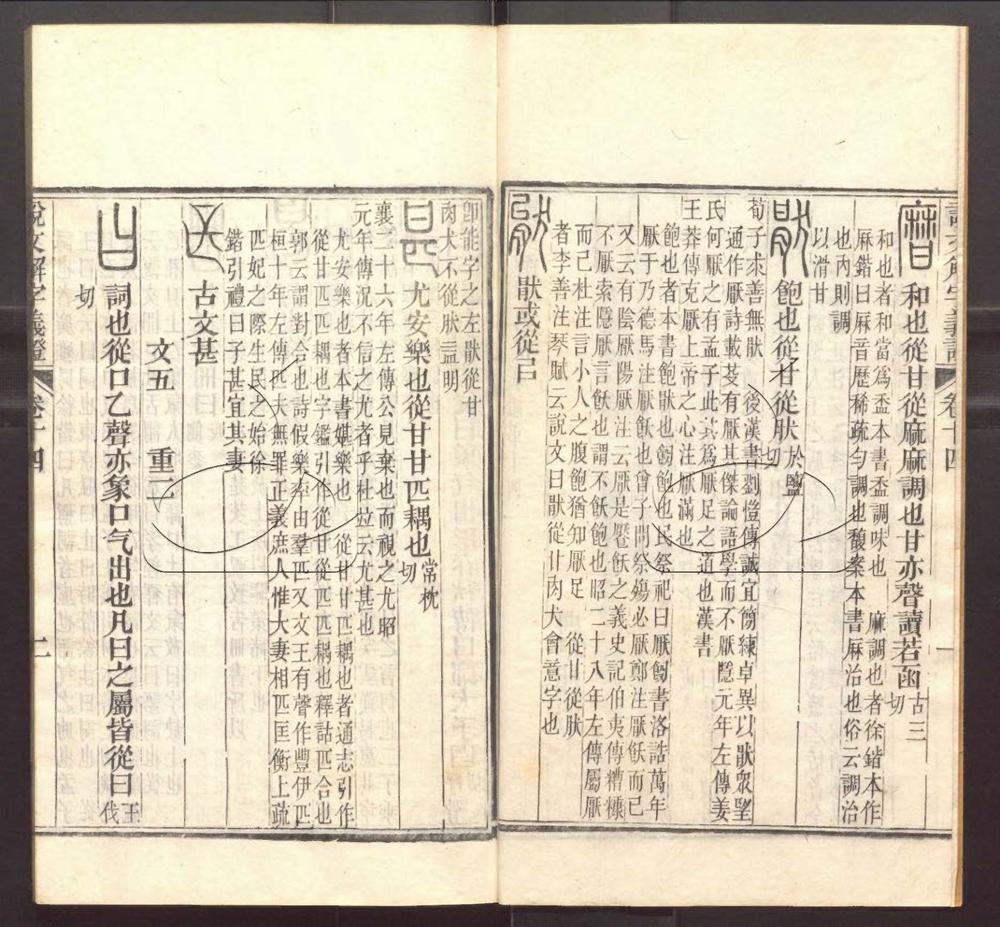 和也從甘從麻麻調也甘亦聲讀若函古三切
和也者和當爲盉本書盉調味也 麻調也者徐鍇本作
麻鍇曰麻音歷稀疏勻調也馥案本書麻治也俗云調治
也內則調
以滑甘
飽也從甘從肰於鹽切
後漢書劉愷傳誠宜簡練卓異以猒衆望
荀子求善無猒
通作厭詩載芟有厭其傑論語學而不厭隱元年左傳姜
氏何厭之有孟子此其爲厭足之道也漢書
王莽傳克厭上帝之心注厭滿也
飽也者本書飽猒也𩚬飽也民祭祝曰厭𩚬書洛誥萬年
厭于乃德馬注厭飫也曾子問祭殤必厭鄭注厭飫而已
又云有陰厭陽厭注云厭是饜飫之義史記伯夷傳糟糠
不厭索隱厭言飫也謂不飫飽也昭二十八年左傳屬厭
而已杜注言小人之腹飽猶知厭足 從甘從肰
者李善注琴賦云說文曰猒從甘肉犬會意字也
猒或從㠯
卽能字之左猒從甘
肉犬不從肰謚明
尤安樂也從甘甘匹耦也常枕切
襄二十六年左傳公見棄也而視之尤昭
元年傳況不信之尤者乎杜竝云尤甚也
尤安樂也者本書媅樂也 從甘甘匹耦也者通志引作
從甘匹匹耦也字鑑引作從甘從匹匹耦也釋詁匹合也
郭云謂對合也詩假樂率由羣匹又文王有聲作豐伊匹
桓十年左傳匹夫無罪正義庶人惟夫妻相匹匡衡上疏
匹妃之際生民之始徐
鍇引禮曰子甚宜其妻
古文甚
文五 重二
詞也從口乙聲亦象口气出也凡曰之屬皆從曰王伐切
說文解字義證 卷十四 二